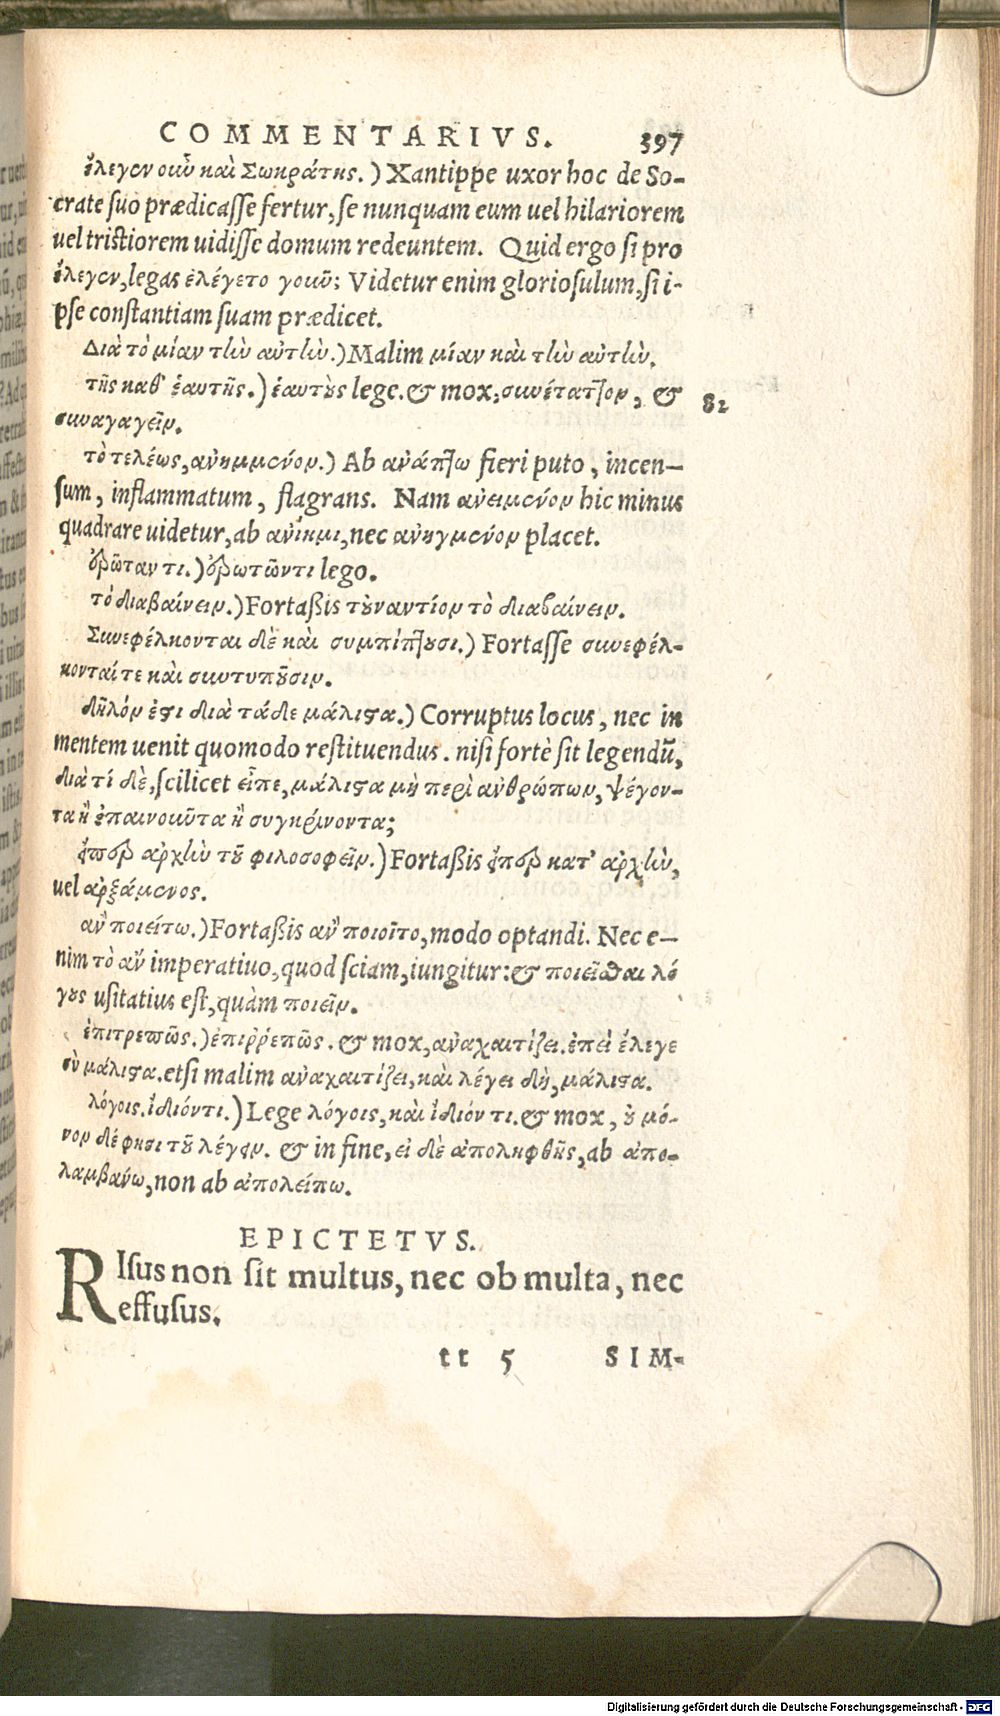 COMMENTARIVS. 397
ἔλεγεν οὖν καὶ Σωκράτης.) Xantippe uxor hoc de So-
crate suo prædicasse fertur, se nunquam eum uel hilariorem
uel tristiorem uidisse domum redeuntem. Quid ergo si pro
ἔλεγεν, legas ἐλέγετο γοῦν; Videtur enim gloriosulum, si i-
pse constantiam suam prædicet.
Διὰ τὸ μίαν τὴν αὐτὴν.) Malim μίαν καὶ τὴν αὐτὴν.
τῆς καθ' ἑαυτῆς.) ἑαυτοὺς lege. & mox, συνέταττον, & 82
συναγαγεῖν.
τὸ τελέως, ἀνημμένον.) Ab ἀνάπτω fieri puto, incen-
sum, inflammatum, flagrans. Nam ἀνειμένον hic minus
quadrare uidetur, ab ἀνίημι, nec ἀνηγμένον placet.
ἐρῶταν τι.) ἐρωτῶντι lego.
τὸ διαβαίνειν.) Fortaßis τοὐναντίον τὸ διαβαίνειν.
Συνεφέλκονται δὲ καὶ συμπίπτουσι.) Fortasse συνεφέλ-
κονταί τε καὶ συντυποῦσιν.
δῆλόν ἐστι διὰ τάδε μάλιστα.) Corruptus locus, nec in
mentem uenit quomodo restituendus. nisi fortè sit legendũ,
διὰ τί δὲ, scilicet εἶπε, μάλιστα μὴ περὶ ἀνθρώπων, ψέγον-
τα ἢ ἐπαινοῦντα ἢ συγκρίνοντα;
ὥσπερ ἀρχὴν τοῦ φιλοσοφεῖν.) Fortaßis ὥσπερ κατ' ἀρχὴν,
uel ἀρξάμενος.
ἂν ποιείτω.) Fortaßis ἂν ποιοῖτο, modo optandi. Nec e-
nim τὸ ἂν imperatiuo, quod sciam, iungitur: & ποιεῖσθαι λό
γους usitatius est, quàm ποιεῖν.
ἐπιτρεπῶς.) ἐπιῤῥεπῶς. & mox, ἀναχαιτίζει. ἐπεὶ ἔλεγε
σὺ μάλιστα. etsi malim ἀναχαιτίζει, καὶ λέγει δὴ, μάλιστα.
λόγοις. ἰδιόντι.) Lege λόγοις, καὶ ἰδιόν τι. & mox, οὐ μό-
νον δέ φησι τοῦ λέγειν. & in fine, εἰ δὲ ἀποληφθῇς, ab ἀπο-
λαμβάνω, non ab ἀπολείπω.
EPICTETVS.
RIsus non sit multus, nec ob multa, nec
effusus.
tt 5 SIM-
Digitalisierung gefördert durch die Deutsche Forschungsgemeinschaft - DFG